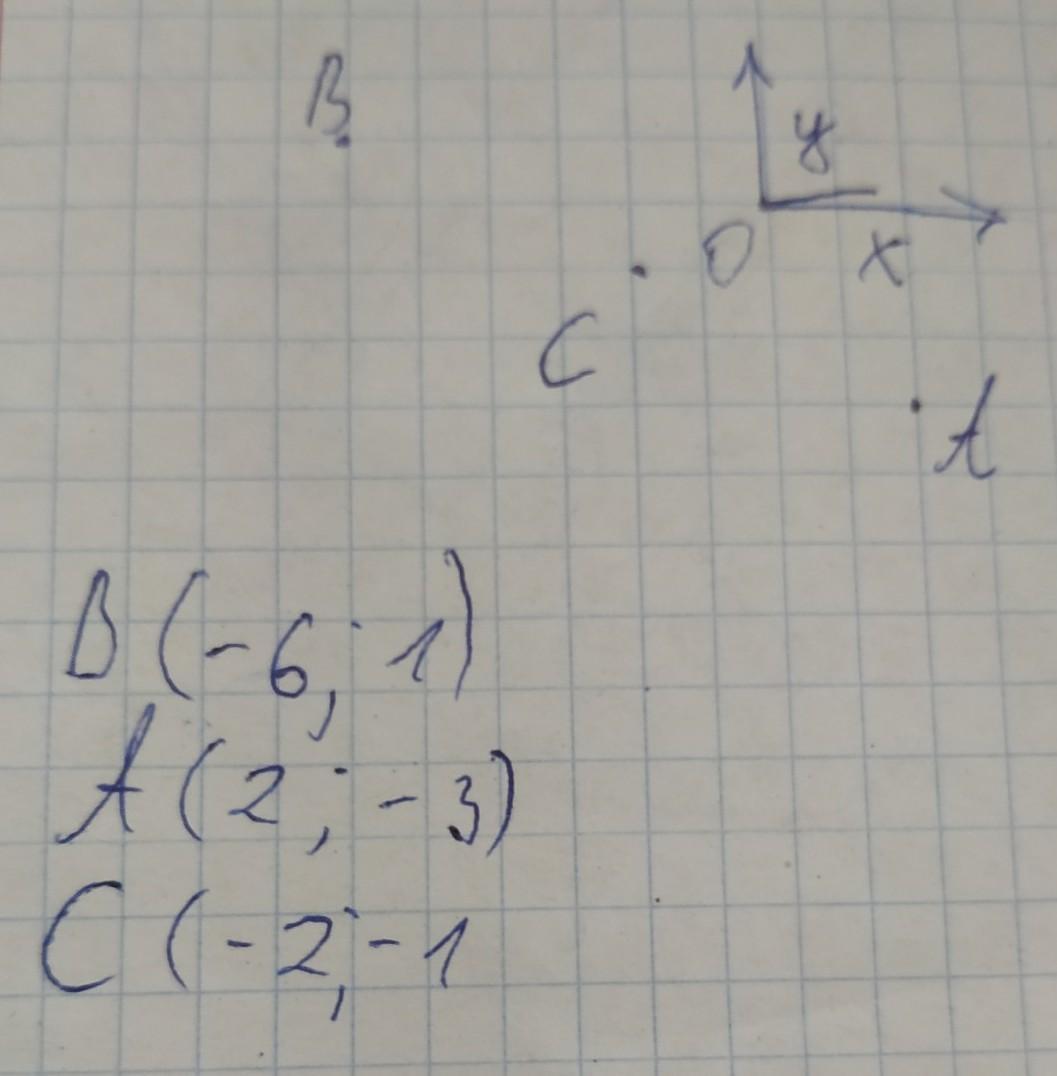 B
y
O
x
C
A
B(-6; 1)
A(2; -3)
C(-2; -1